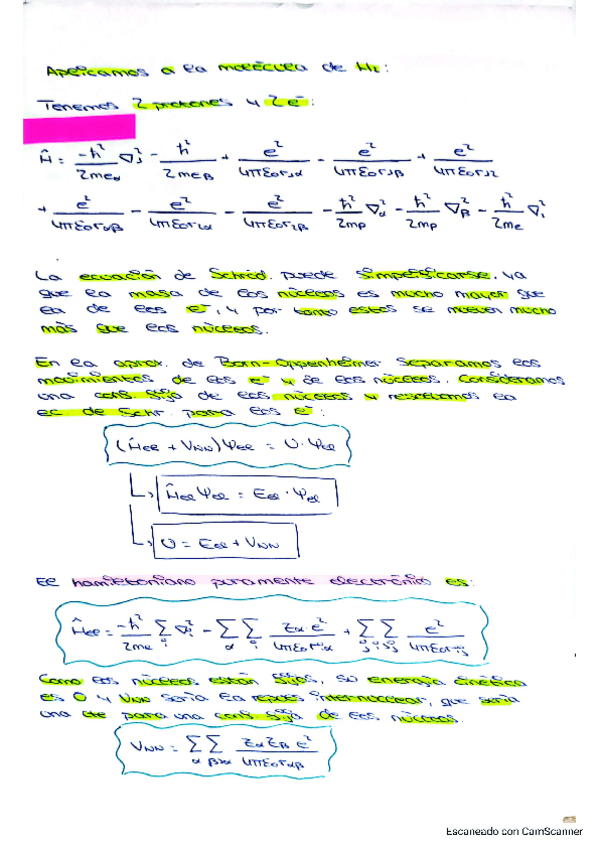 Aplicamos a la molécula de H₂:
Tenemos 2 protones y 2 e⁻:
Ĥ = -ħ²/2meα ∇²ⱼ - ħ²/2meβ + e²/4πε₀r₁α - e²/4πε₀r₁β + e²/4πε₀r₁₂
+ e²/4πε₀rαβ - e²/4πε₀r₂α - e²/4πε₀r₂β - ħ²/2mp ∇²α - ħ²/2mp ∇²β - ħ²/2me ∇²ᵢ
La ecuación de Schröd. puede simplificarse, ya
que la masa de los núcleos es mucho mayor que
la de los e⁻, y por tanto estos se mueven mucho
más que los núcleos.
En la aprox. de Born-Oppenheimer separamos los
movimientos de los e⁻ y de los núcleos. Consideramos
una conf. fija de los núcleos y resolvemos la
ec de Schr. para los e⁻:
(Ĥel + VNN)Ψel = U·Ψel
Ĥel Ψel = Eel · Ψel
U = Eel + VNN
El hamiltoniano puramente electrónico es:
Ĥel = -ħ²/2me Σᵢ ∇²ᵢ - Σα Σᵢ Zα·e²/4πε₀rᵢα + Σⱼ Σᵢ>ⱼ e²/4πε₀rᵢⱼ
Como los núcleos están fijos, su energía cinética
es 0 y VNN sería la repuls. internuclear, que sería
una cte para una conf. fija de los núcleos.
VNN = Σα Σβ>α ZαZβ e²/4πε₀rαβ
Escaneado con CamScanner